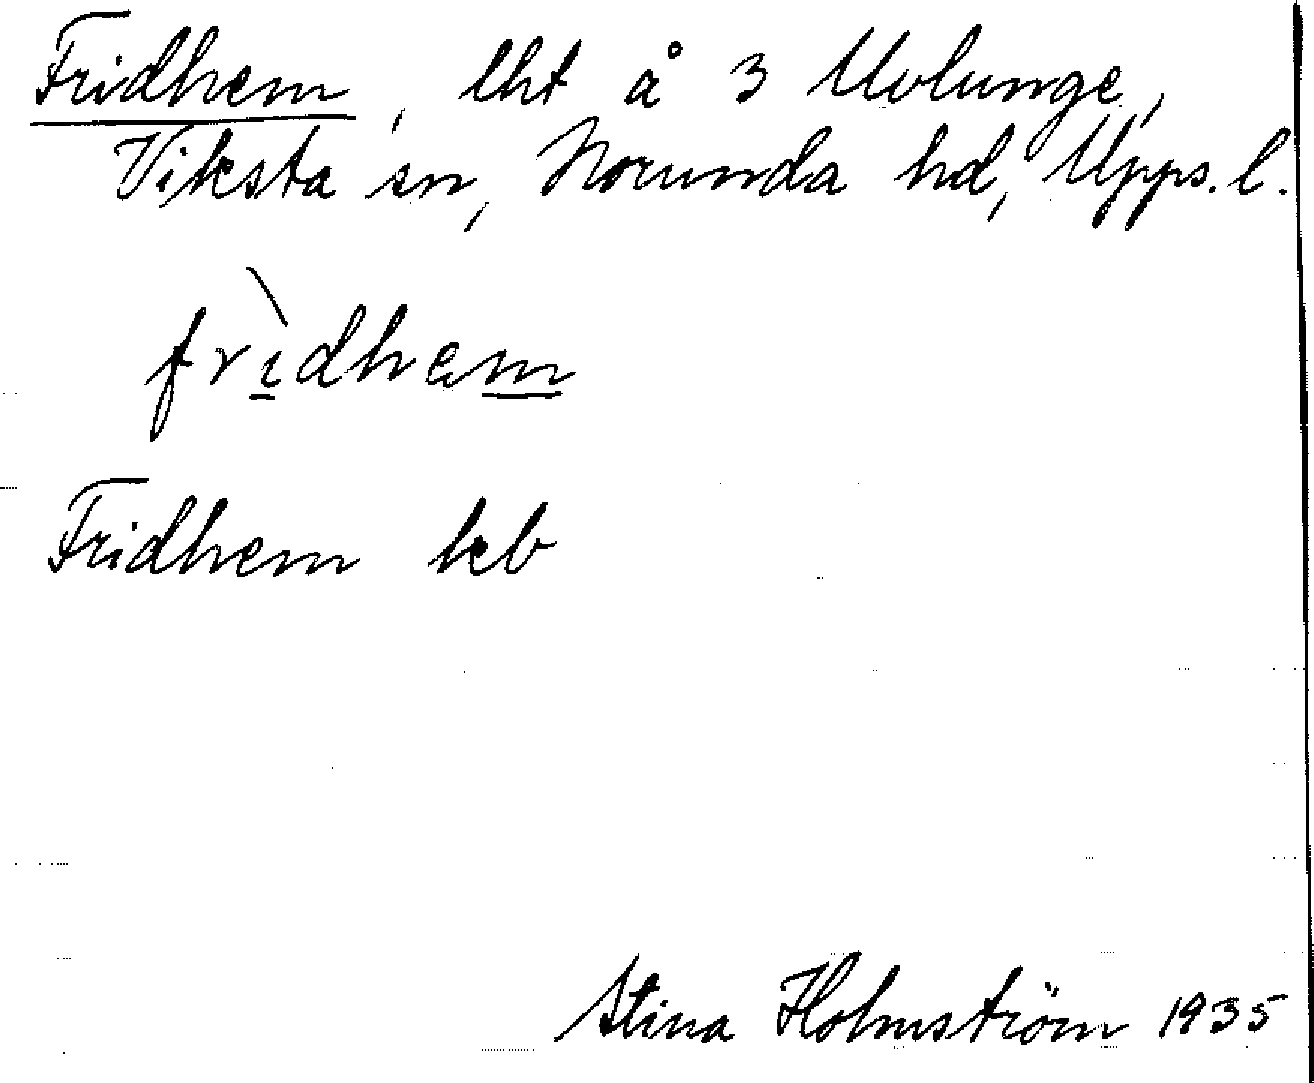 Fridhem, lht å 3 Uvlunge,
Viksta sn, Norunda hd, Upps. l.
frìdhem
Fridhem kb
Stina Holmström 1935